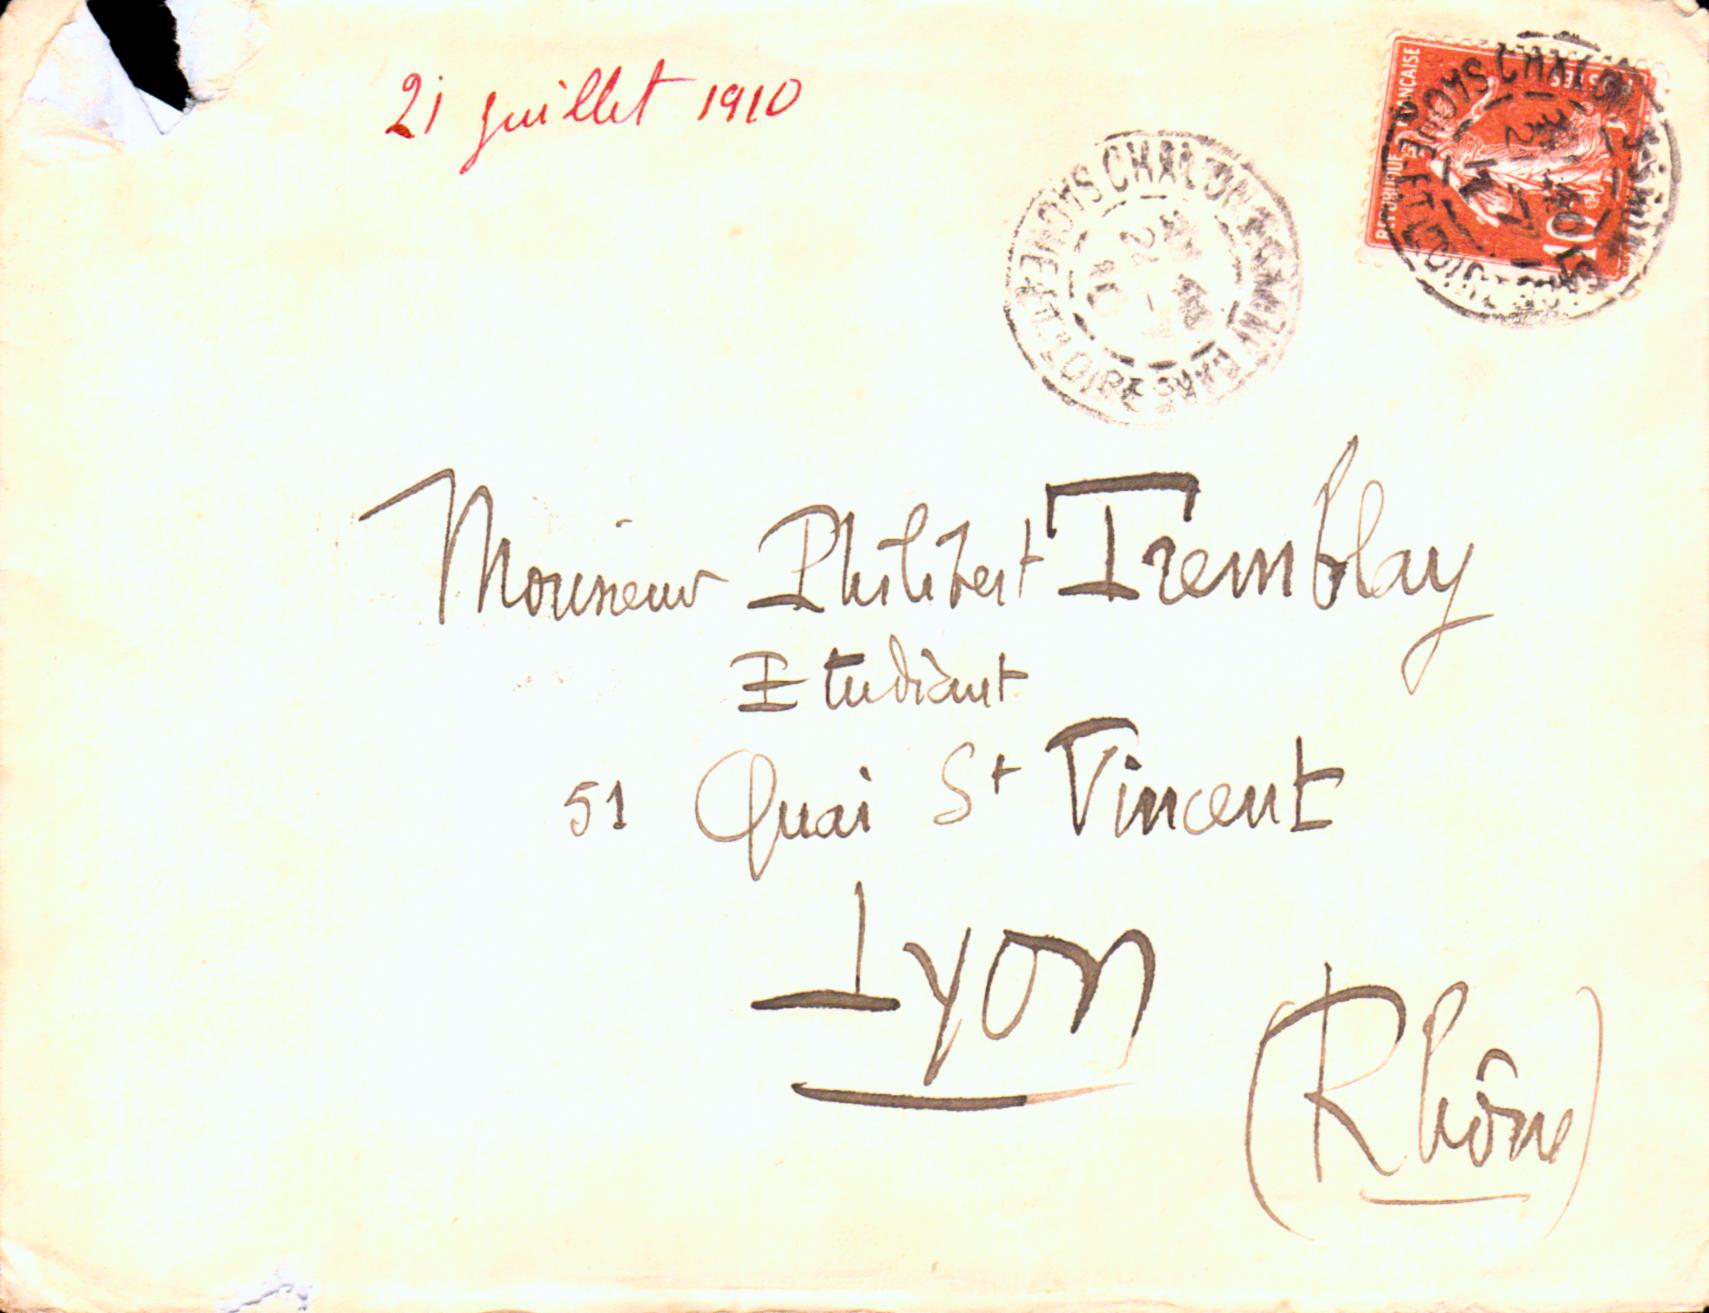 21 juillet 1910
RÉPUBLIQUE FRANÇAISE
10
CHALON S SAONE GARE
SAONE-ET-LOIRE
CHALON
SAONE-ET-LOIRE
Monsieur Philibert Tremblay
Etudiant
51 Quai St Vincent
Lyon
(Rhône)